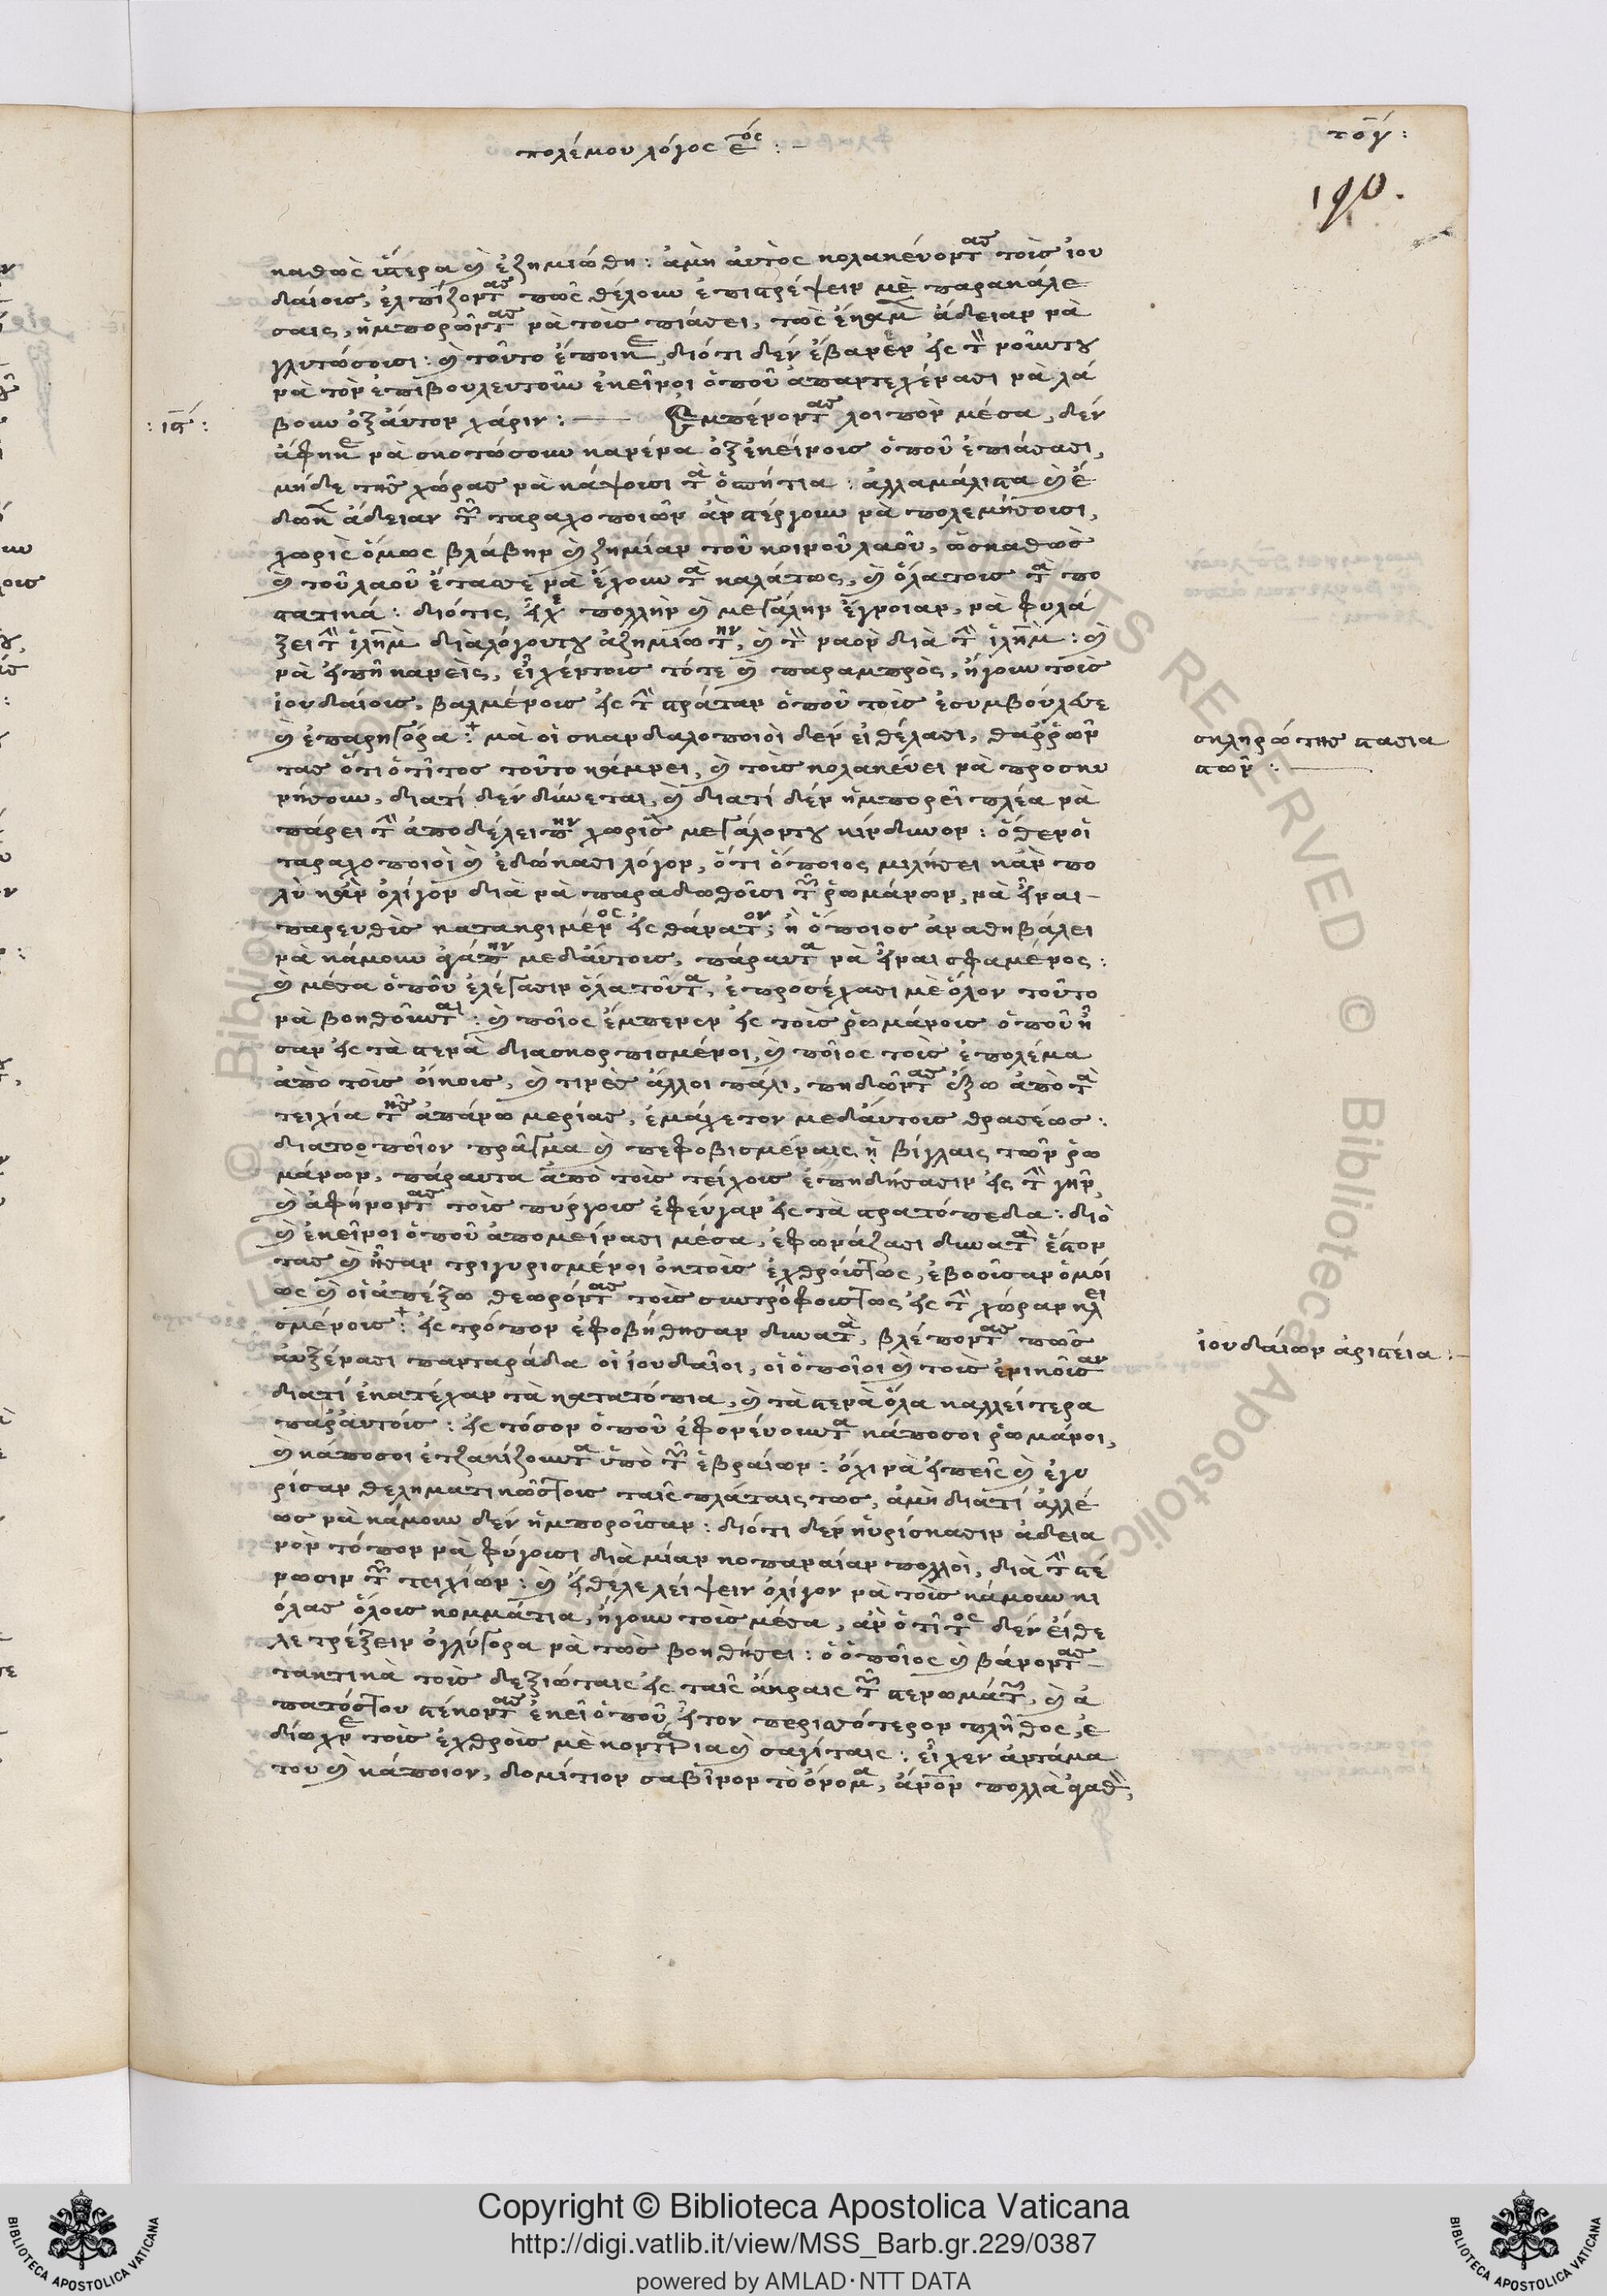 πολέμου λόγος ε^ος : –
τογ :
190.
καθὼς ὕστερα καὶ ἐζημιώθη : ἀμὴ ἀυτὸς κολακεύοντας τοὶς ἰου
δαίοις, ἐλπίζοντας πῶς θέλουν ἐπιστρέψειν μὲ παρακάλε
σαις, ἠμπορῶντας νὰ τοὶς πιάσει, τῶς ἔκαμε ἄδειαν νὰ
γλυτώσοισι : καὶ τοῦτο ἔποικε, διότι δὲν ἔβανεν εἰς τὸν νοῦντου
νὰ τὸν ἐπιβουλευτοῦν ἐκεῖνοι ὁποῦ ἀπαντεχένασι νὰ λά
: ια :
βουν ὀξἀυτον χάριν : — Ἐμπένοντας λοιπὸν μέσα, δὲν
ἀφῆκε νὰ σκοτώσουν κανένα ὀξἐκείνοις ὁποῦ ἐπιάσασι,
μήδε τῆς χώρας νὰ κάψοισι τὰ ὁσπήτια : ἀλλαμάλιστα καὶ ἔ
δωκε ἄδειαν τῶν ταραχοποιῶν ἀν στέργουν νὰ πολεμήσοισι,
χωρὶς ὅμως βλάβην καὶ ζημίαν τοῦ κοινοῦ λαοῦ, ὡσκαθὼς
καὶ τοῦ λαοῦ ἔταξε νὰ ἔχουν τὰ καλάτως, καὶ ὅλατοις τὰ πο
στατικά : διότις, εἶχε πολλὴν καὶ μεγάλην ἔγνοιαν, νὰ φυλά
ξει τὴν ἱλημ διὰλόγουτου ἀζημίωτην, καὶ τὸν ναὸν διὰ τὴν ἱλημ : καὶ
νὰ εἰπῆ κανεὶς, εἶχέντοις τότε καὶ παραμπρὸς, ἤγουν τοὶς
ἰουδαίοις, βαλμένοις εἰς τὴν στράταν ὁποῦ τοὶς ἐσυμβούλευε
καὶ ἐπαρηγόρα : μὰ οἱ σκανδαλοποιοὶ δὲν εἰθέλασι, θαῤῥῶν
σκληρώτης στασια
στῶν : —
τας ὅτι ὁτῖτος τοῦτο κάμνει, καὶ τοὶς κολακεύει νὰ προσκυ
νήσουν, διατί δὲν δύνεται, καὶ διατί δὲν ἠμπορεῖ πλέα νὰ
πάρει τὴν ἀποδέλειπην χωρὶς μεγάλοντου κίνδυνον : ὅθενοἱ
ταραχοποιοὶ καὶ ἐδώκασι λόγον, ὅτι ὅποιος μιλήσει κἀν πο
λὺ κἀν ὀλίγον διὰ νὰ παραδωθοῦσι τῶν ῥωμάνων, νὰ εἶναι –
παρευθὶς κατακριμένος εἰς θάνατον; ἢ ὅποιος ἀναθηβάλει
νὰ κάμουν ἀγάπην μεδἀυτοις, πάραυτα νὰ εἶναι σφαμένος :
καὶ μέσα ὁποῦ ἐλέγασιν ὅλα τοῦτα, ἐπροσέχασι μὲ ὅλον τοῦτο
νὰ βοηθοῦνται : καὶ ποῖος ἔμπενεν εἰς τοὶς ῥωμάνοις ὁποῦ ἦ
σαν εἰς τὰ στενὰ διασκορπισμένοι, καὶ ποῖος τοὶς ἐπολέμα
ἀπὸ τοὶς οἴκοις, καὶ τινὲς ἄλλοι πάλι, πηδῶντας ἔξω ἀπὸ τὰ
τειχία τῆς ἀπάνω μερίας, ἐμάχετον μεδἀυτοις θρασέως :
διατοο ποῖον πρᾶγμα καὶ πεφοβισμέναις ἡ βίγλαις τῶν ῥω
μάνων, πάραυτα ἀπὸ τοὶς τείχοις ἐπηδήσασιν εἰς τὴν γῆν,
καὶ ἀφήνοντας τοὶς πύργοις ἐφεύγαν εἰς τὰ στρατόπεδα : διὸ
καὶ ἐκεῖνοι ὁποῦ ἀπομείνασι μέσα, ἐφωνάζασι δυνατὰ ἔστον
τας καὶ ἦσαν τριγυρισμένοι ὀκτοὶς ἐχθροίστως, ἐβοοῦσαν ὁμοί
ως καὶ οἱ ἀπέξω θεωρόντας τοὶς συντρόφοιστως εἰς τὴν χώραν κλει
σμένοις : εἰς τρόπον ἐφοβήθησαν δυνατὰ, βλέποντας πῶς
ἰουδαίων ἀριστεία : –
ἀυξένασι πανταράδα οἱ ἰουδαῖοι, οἱ ὁποῖοι καὶ τοὶς ἐνικοῦσαν
διατί ἐκατέχαν τὰ κατατόπια, καὶ τὰ στενὰ ὅλα καλλείτερα
παρἀυτοίς : εἰς τόσον ὁποῦ ἐφονεύουντα κάποσοι ῥωμάνοι,
καὶ κάποσοι ἐτζακίζουντα ὑπὸ τῶν ἑβραίων : ὄχι νὰ εἰπεῖς καὶ ἐγυ
ρίσαν θεληματικῶστοις ταῖς πλάταις τως, ἀμὴ διατί ἀλλέ
ως νὰ κάμουν δὲν ἠμποροῦσαν : διότι δὲν ηὑρίσκασιν ἄδεια
νὸν τόπον νὰ φύγοισι διὰ μίαν κοπανίαν πολλοὶ, διὰ τὴν στέ
νωσιν τῶν τειχίων : καὶ εἴθελε λείψειν ὀλίγον νὰ τοὶς κάμουν κι
όλας ὅλοις κομμάτια, ἤγουν τοὶς μέσα, ἀν ὁτῖτος δὲν εἴθε
λε τρέξειν ὀγλύγορα νὰ τῶς βοηθήσει : ὁ ὁποῖος καὶ βάνοντας –
τακτικὰ τοὶς δεξιώταις εἰς ταῖς ἄκραις τῶν στενωμάτων, καὶ ἀ
πατόστου στέκοντας ἐκεῖ ὁποῦ εἶτον περισσότερον πλῆθος, ἐ
δίωχνε τοὶς ἐχθροὶς μὲ κοντάρια καὶ σαγίταις : εἶχεν ἀντάμα
του καὶ κάποιον, δομίτιον σαβῖνον τὸ ὄνομα, ἄνον πολλὰ ἀγαθὸν,
Copyright © Biblioteca Apostolica Vaticana
http://digi.vatlib.it/view/MSS_Barb.gr.229/0387
powered by AMLAD·NTT DATA